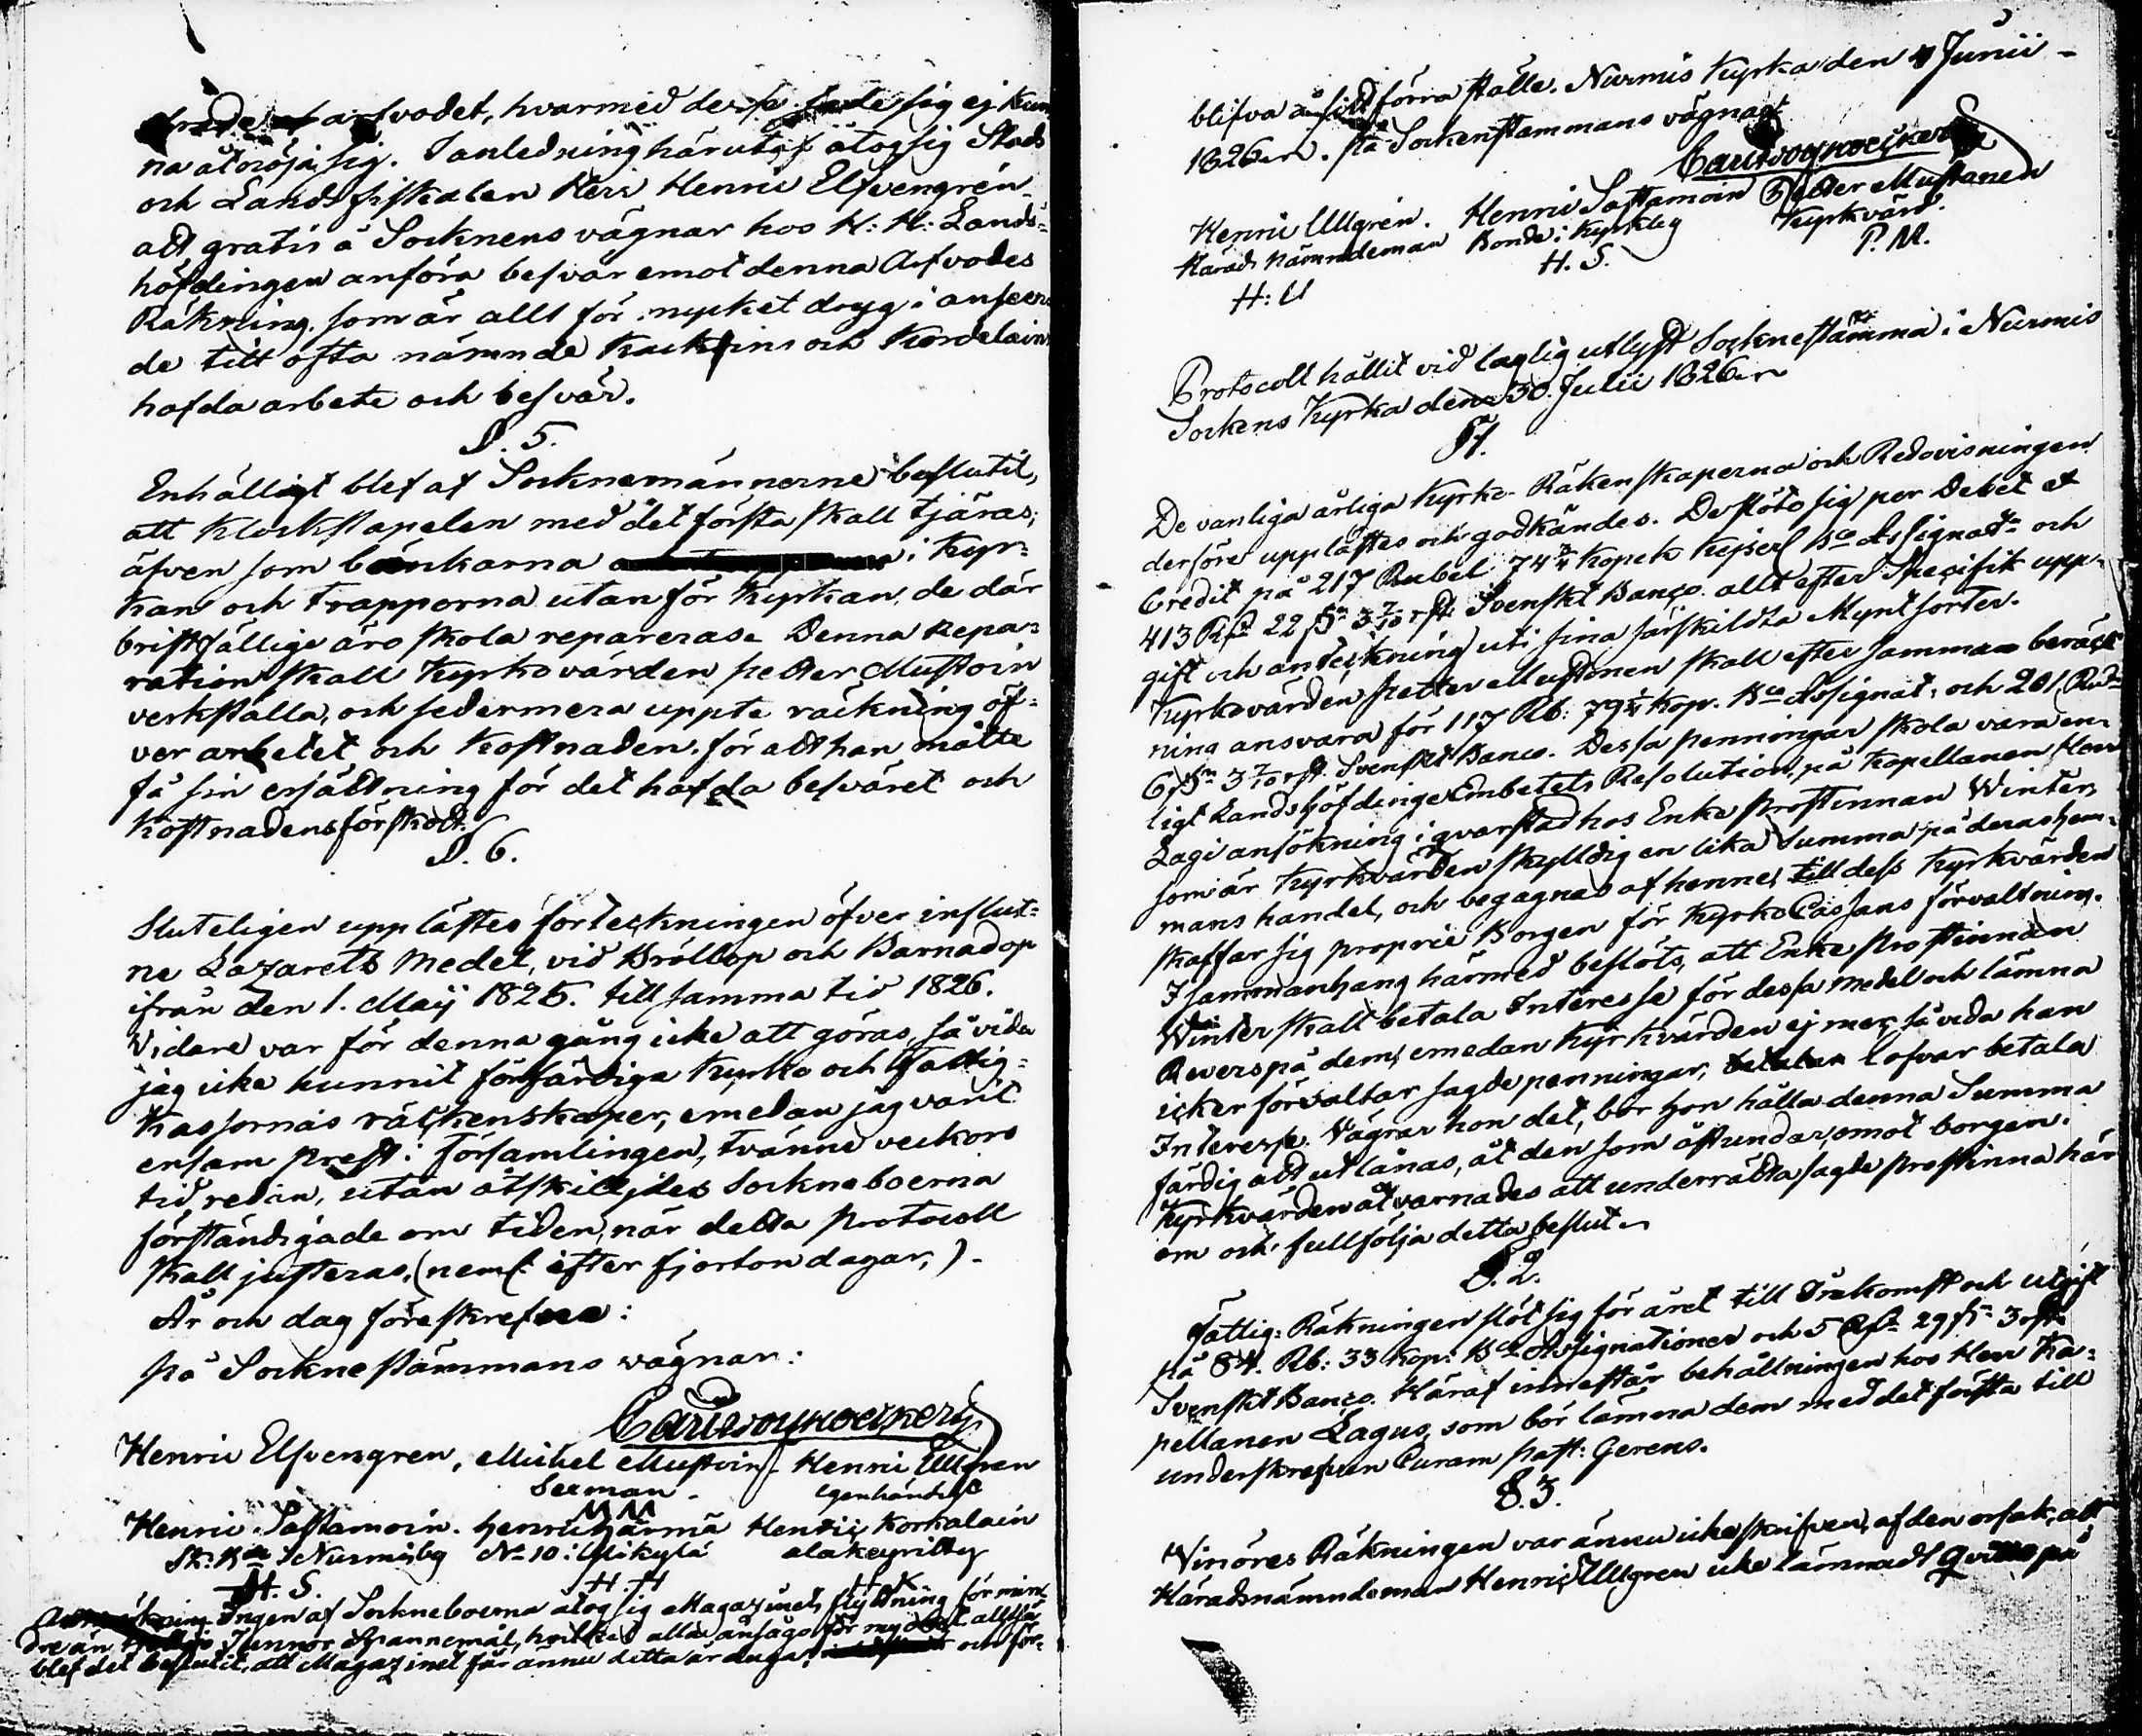 arfvodet, hvarmed dessa sig ej kun
na åtnöja sig. I anledning härutaf åtog sig Stads
och Landsfiskalen Herr Henric Elfvengrén
att gratis å Socknens vägnar hos H: H: Lands-
höfdingen anföra besvär emot denna Arfvodes
Räkning, som är allt för mycket dryg i anseen
de till ofta nämnde och Kordelains
hafda arbete och besvär.
§. 5.
Enhälligt blef af Socknemännerne beslutit,
att Klockstapelen med det första skall tjäras,
äfven som bänkarna i Kyr-
kan och trapporna utanför Kyrkan, de där
bristfällige äro skola repareras. Denna Repa-
ration skall Kyrkovärden Petter Mustoin
verkställa, och sedermera uppte räckning öf-
ver arbetet och Kostnaden, för att han måtte
få sin ersättning för det hafda besväret och
Kostnadens förskott.
§. 6.
Sluteligen upplästes förteckningen öfver influt-
ne Lazaretts Medel, vid Bröllop och Barnadop
ifrån den 1. Maij 1825. till samma tid 1826.
Vidare var för denna gång icke att göras, så vida
jag icke hunnit förfärdiga Kyrko och Fattig-
Kassornas räckenskaper, emedan jag varit
ensam prest i Församlingen, tvänne veckors
tid, redan, utan åtskilljdes Sockneboerna
förständigade om tiden, när detta Protocoll
skall justeras, (neml: efter fjorton dagar,).
År och dag föreskrefne:
på Socknestämmans vägnar:
Henric Elfvengren, Mickel Mustoin Henric Ullgren
Sexman egenhändigt
MM
Henric Sastamoin. Henric Härmä Henric Korkalain
i Nurmisby No 10 i Ylikylä alakeyritty
H. S. H. H H K
Ingen af Sockneboerna åtog sig Magazinets flyttning för min
dre än Tunnor Spannemål, hvilket alla ansågo för mycket, alltså
blef det beslutit, att Magazinet får ännu detta år duga, och för-
blifva å sitt förra ställe. Nurmis Kyrka den 4 Junii
1826. på Sockenstämmans vägnar
Henric Ullgrén. Henric Sastamoin Petter Mustonen
Härads Nämndeman Bonde i Kyrkbyg Kyrkvärd.
H: U H. S. P. M.
Protocoll hållit vid laglig utlyst Socknestämma i Nurmis
Sockens Kyrka den 30. Julii 1826.
§ 1.
De vanliga årliga Kyrko-Räkenskaperna och Redovisningen
derföre upplästes och godkändes. De slöto sig per Debet et
Credit på 217 Rubel 74 Kopek Kejserl Bco Assignatr och
413 Rd 22 sk 3 rst. Svenskt Banco allt efter Specifik upp-
gift och anteckning uti sina särskildta Myntsorter.
Kyrkovärden Petter Mustonen skall efter samma beräck
ning ansvara för 117 Rb: 79 kop. Bco Assignat: och 201 Rd
6 sk 3 rst. Svenskt Banco. Dessa penningar skola vara en-
ligt Landshöfdinge Embetets Resolution, på Kapellanen Herr
Lagi ansökning i qvarstad hos Enke Prostinnan Winter,
som är Kyrkvärden skylldig en lika Summa på deras hem-
mans handel, och begagnas af henne, till dess Kyrkvärden
skaffar sig proprie Borgen för Kyrko Cassans förvaltning.
I sammanhang härmed beslöts, att Enke Prostinnan
Winter skall betala Interesse för dessa medel och lämna
Revers på dem, emedan Kyrkvärden ej mer, så vida han
icke förvaltar sagde penningar, lofvar betala
Interesse. Vägrar hon det, bör hon hålla denna Summa
färdig att utlånas, åt den som åstundar, emot borgen.
Kyrkvärden åtvarnades att underrätta sagde Prostinna här
om och fullfölja detta beslut.
§. 2.
Fattig-Räkningen slöt sig för året till Inkomst och utgift
på 84. Rb: 33 kop: Bco Assignationer och 5 Rd 29 sk 3 rst
Svenskt Banco. Häraf innestår behållningen hos Herr Ka-
pellanen Lagus, som bör lämna dem med det första till
underskrefven Curam Past: Gerens.
§. 3.
Vinöres Räkningen var ännu icke skrifven, af den orsak, att
Häradsnämndeman Henric Ullgren icke lämnadt qvitto på